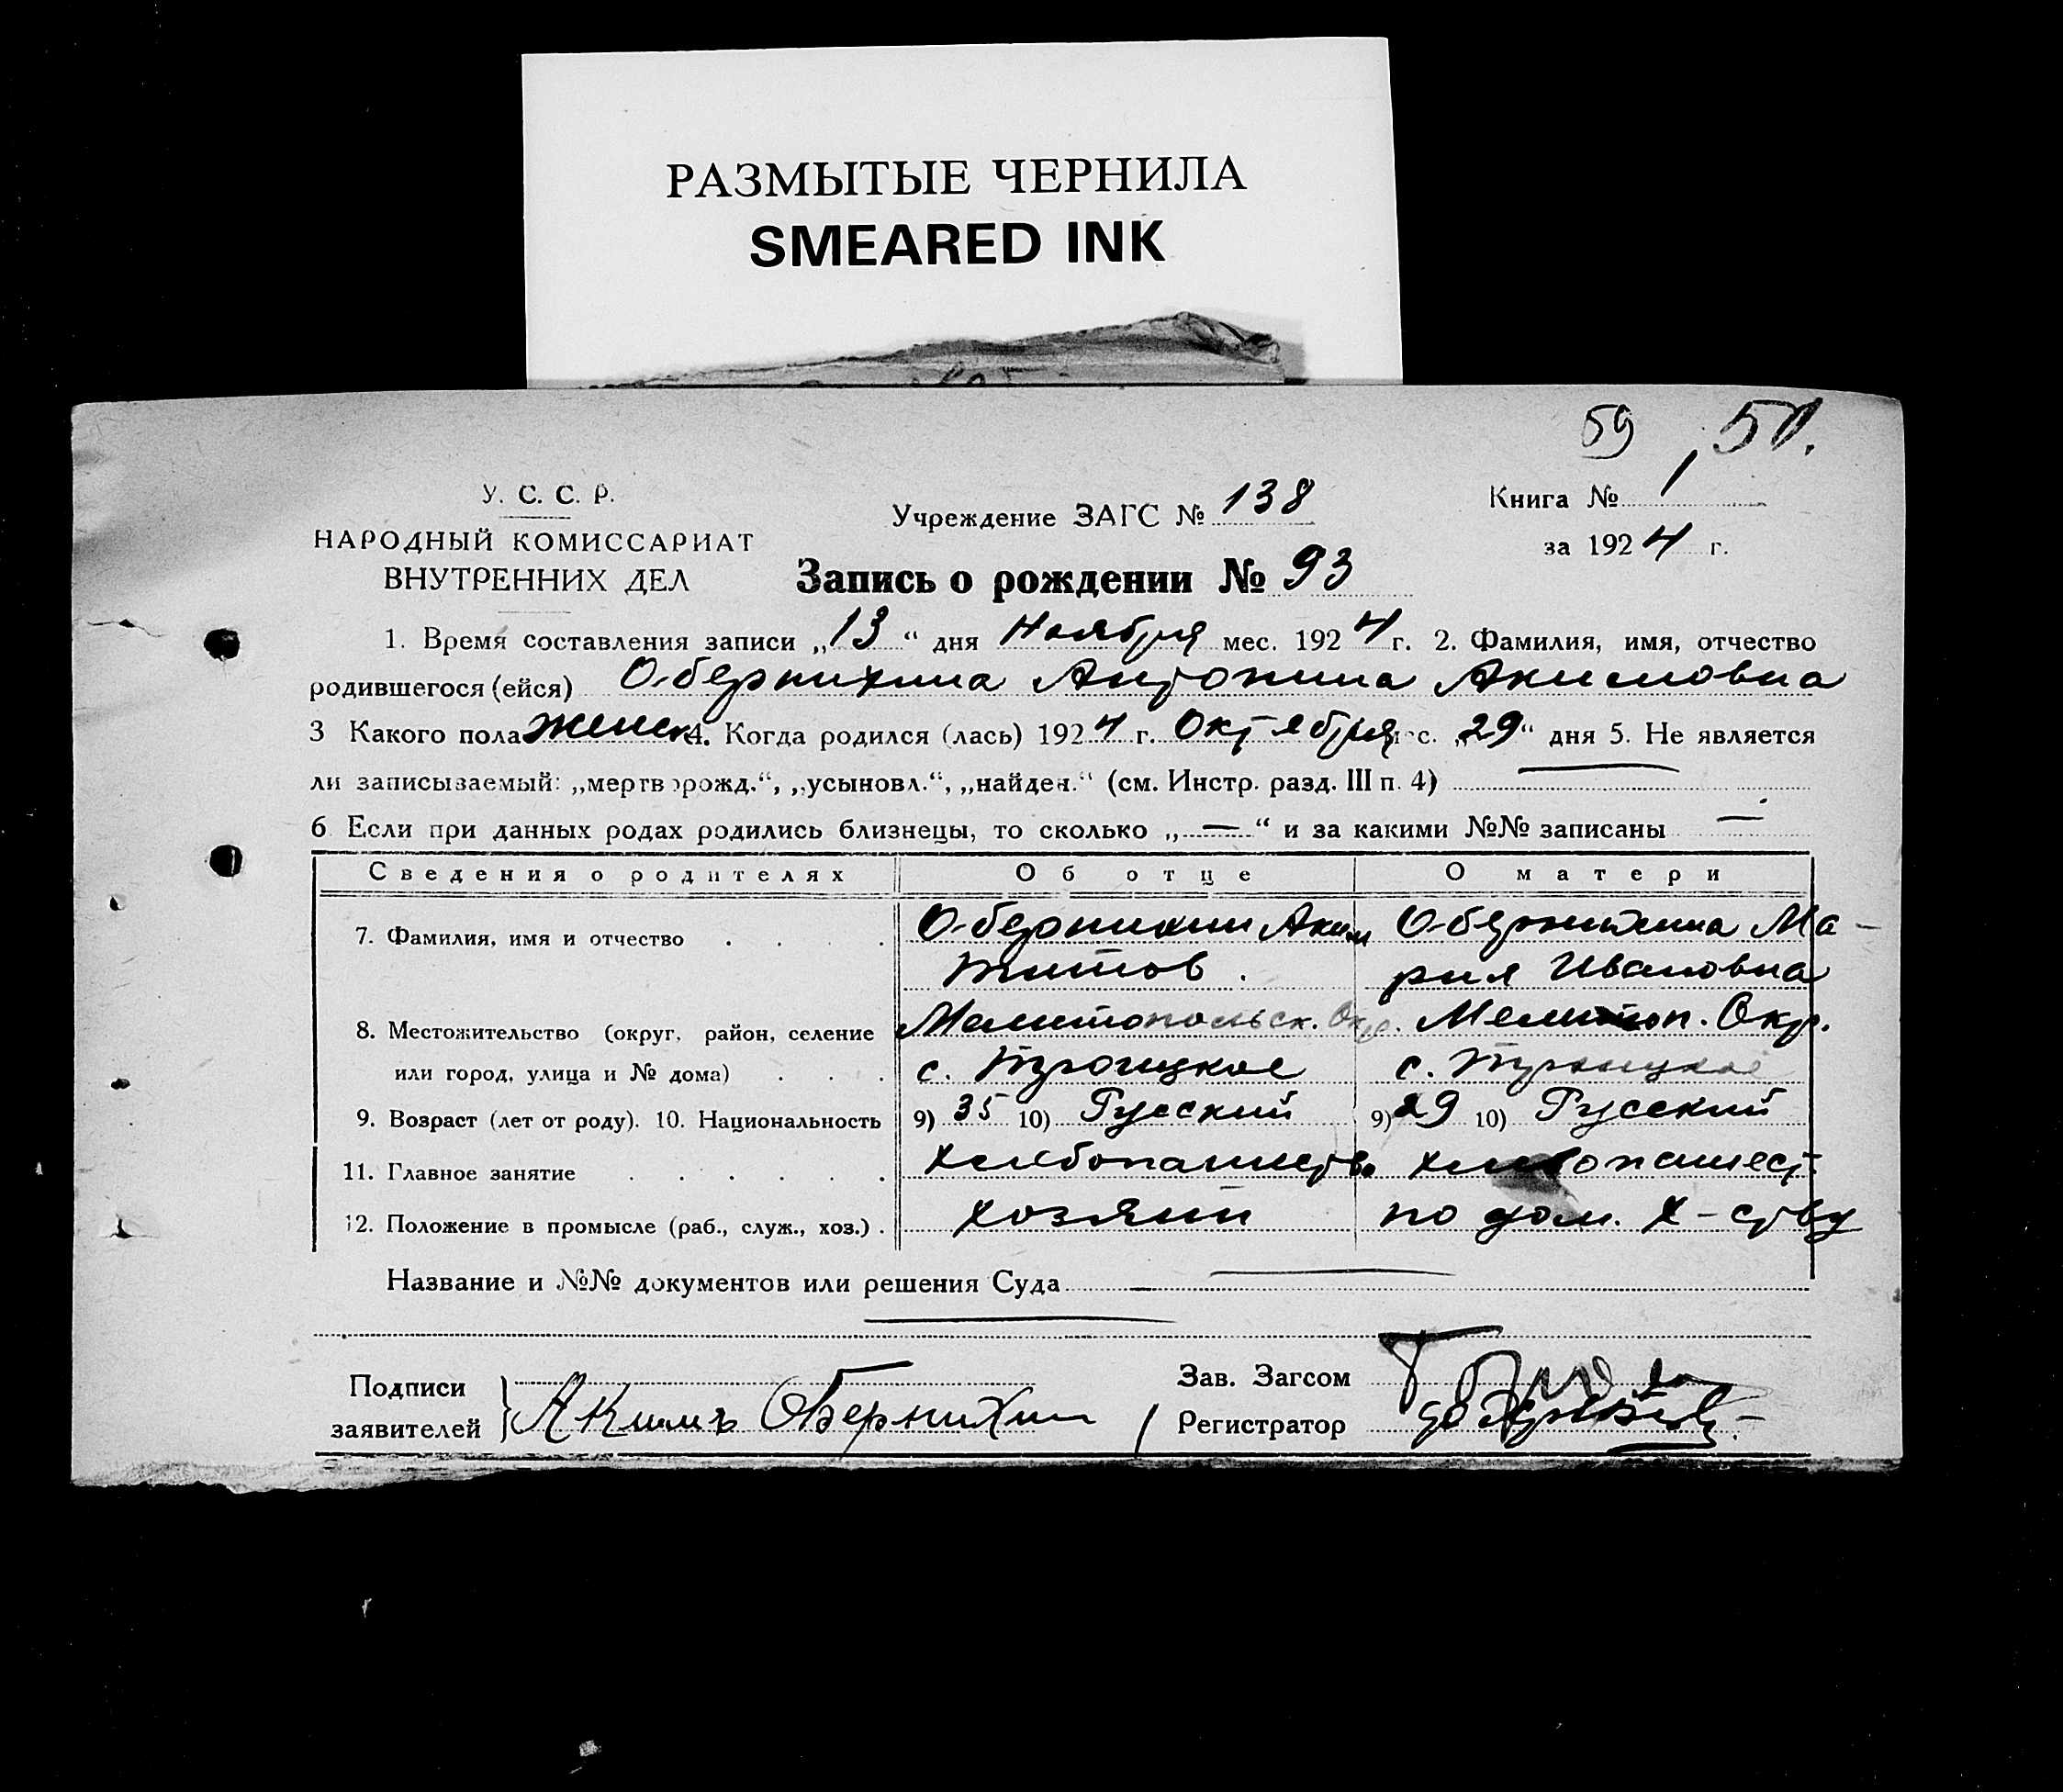 РАЗМЫТЫЕ ЧЕРНИЛА
SMEARED INK
59 50.
У. С. С. Р.
НАРОДНЫЙ КОМИССАРИАТ
ВНУТРЕННИХ ДЕЛ
Учреждение ЗАГС № 138
Запись о рождении № 93
Книга № 1
за 1924 г.
1. Время составления записи „13“ дня Ноября мес. 1924 г. 2. Фамилия, имя, отчество
родившегося (ейся) Обернихина Антонина Акимовна
3 Какого пола женск 4. Когда родился (лась) 1924 г. Октября мес. „29“ дня 5. Не является
ли записываемый: „мертворожд.“, „усыновл.“, „найден.“ (см. Инстр. разд. III п. 4) —
6 Если при данных родах родились близнецы, то сколько „—“ и за какими №№ записаны —
Сведения о родителях Об отце О матери
7. Фамилия, имя и отчество . . . . Обернихин Аким Обернихина Ма-
Титов. рия Ивановна
8. Местожительство (округ, район, селение Мелитопольск. Окр. Мелитоп. Окр.
или город, улица и № дома) . . . с. Троицкое с. Троицкое
9. Возраст (лет от роду). 10. Национальность 9) 35 10) Русский 9) 29 10) Русский
11. Главное занятие . . . . . . Хлебопашество хлебопашест.
12. Положение в промысле (раб., служ., хоз.) . хозяин по дом. х-ству
Название и №№ документов или решения Суда —
Подписи
заявителей } Акимъ Обернихин
Зав. Загсом
Регистратор